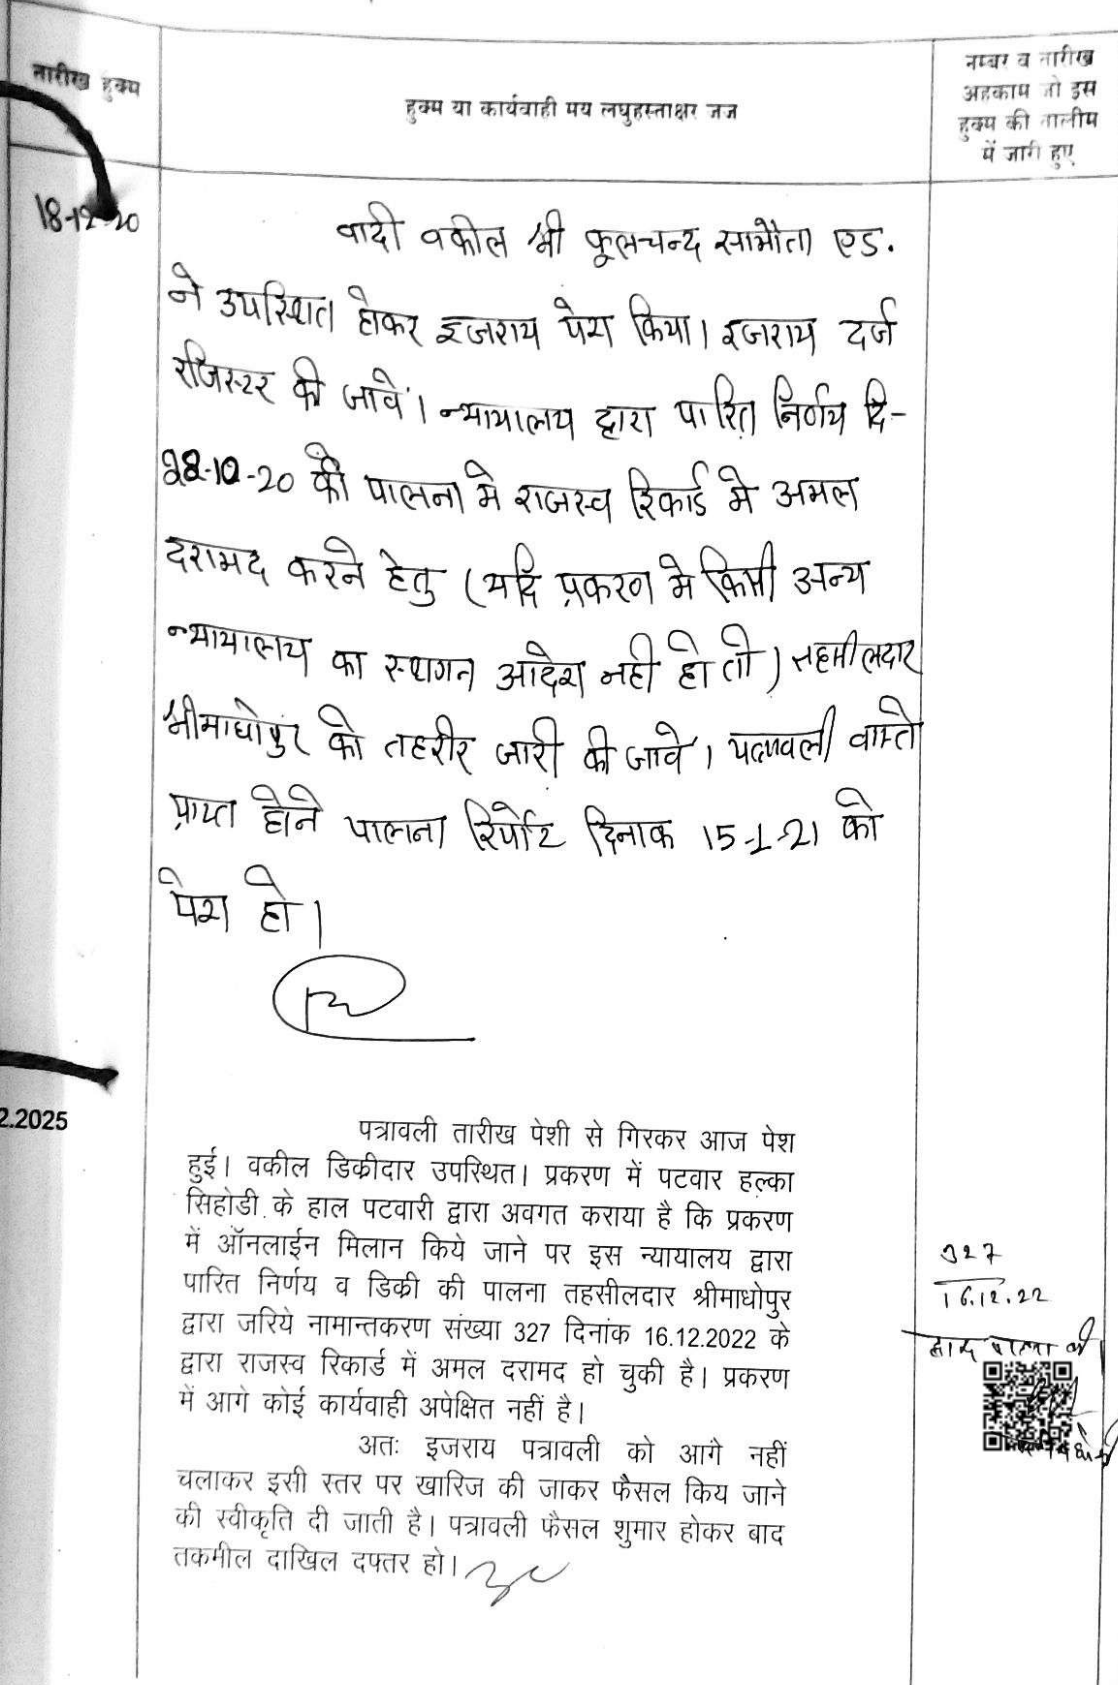 तारीख हुक्म
हुक्म या कार्यवाही मय लघुहस्ताक्षर जज
नम्बर व तारीख
अहकाम जो इस
हुक्म की तालीम
में जारी हुए
18-12-20
वादी वकील श्री फूलचन्द सामौता एड.
ने उपस्थित होकर इजराय पेश किया। इजराय दर्ज
रजिस्टर की जावें। न्यायालय द्वारा पारित निर्णय दि-
28-10-20 की पालना मे राजस्व रिकार्ड मे अमल
दरामद करने हेतु (यदि प्रकरण मे किसी अन्य
न्यायालय का स्थगन आदेश नही हो तो) तहसीलदार
श्रीमाधोपुर को तहरीर जारी की जावे। पत्रावली वास्ते
प्राप्त होने पालना रिर्पोट दिनाक 15-1-21 को
पेश हो।
2.2025
पत्रावली तारीख पेशी से गिरकर आज पेश
हुई। वकील डिक्रीदार उपस्थित। प्रकरण में पटवार हल्का
सिहोडी के हाल पटवारी द्वारा अवगत कराया है कि प्रकरण
में ऑनलाईन मिलान किये जाने पर इस न्यायालय द्वारा
पारित निर्णय व डिक्री की पालना तहसीलदार श्रीमाधोपुर
द्वारा जरिये नामान्तकरण संख्या 327 दिनांक 16.12.2022 के
द्वारा राजस्व रिकार्ड में अमल दरामद हो चुकी है। प्रकरण
में आगे कोई कार्यवाही अपेक्षित नहीं है।
327
16.12.22
अतः इजराय पत्रावली को आगे नहीं
चलाकर इसी स्तर पर खारिज की जाकर फैसल किय जाने
की स्वीकृति दी जाती है। पत्रावली फैसल शुमार होकर बाद
तकमील दाखिल दफ्तर हो।